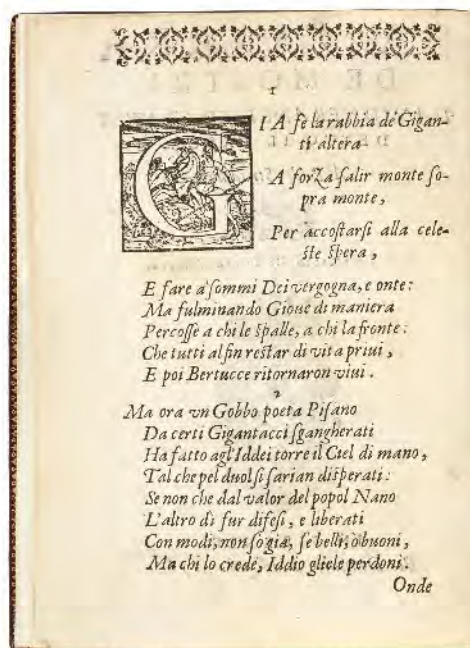 1
GIA fè la rabbia de' Gigan-
ti altera
A forza salir monte so-
pra monte,
Per accostarsi alla cele-
ste spera,
E fare a' sommi Dei vergogna, e onte:
Ma fulminando Gioue di maniera
Percosse a chi le spalle, a chi la fronte:
Che tutti alfin restar di vita priui,
E poi Bertucce ritornaron viui.
2
Ma ora vn Gobbo poeta Pisano
Da certi Gigantacci sgangherati
Ha fatto agl'Iddei torre il Ciel di mano,
Tal che pel duol si sarian disperati:
Se non che dal valor del popol Nano
L'altro dì fur difesi, e liberati
Con modi, non so già, se belli, o buoni,
Ma chi lo crede, Iddio gliele perdoni.
Onde